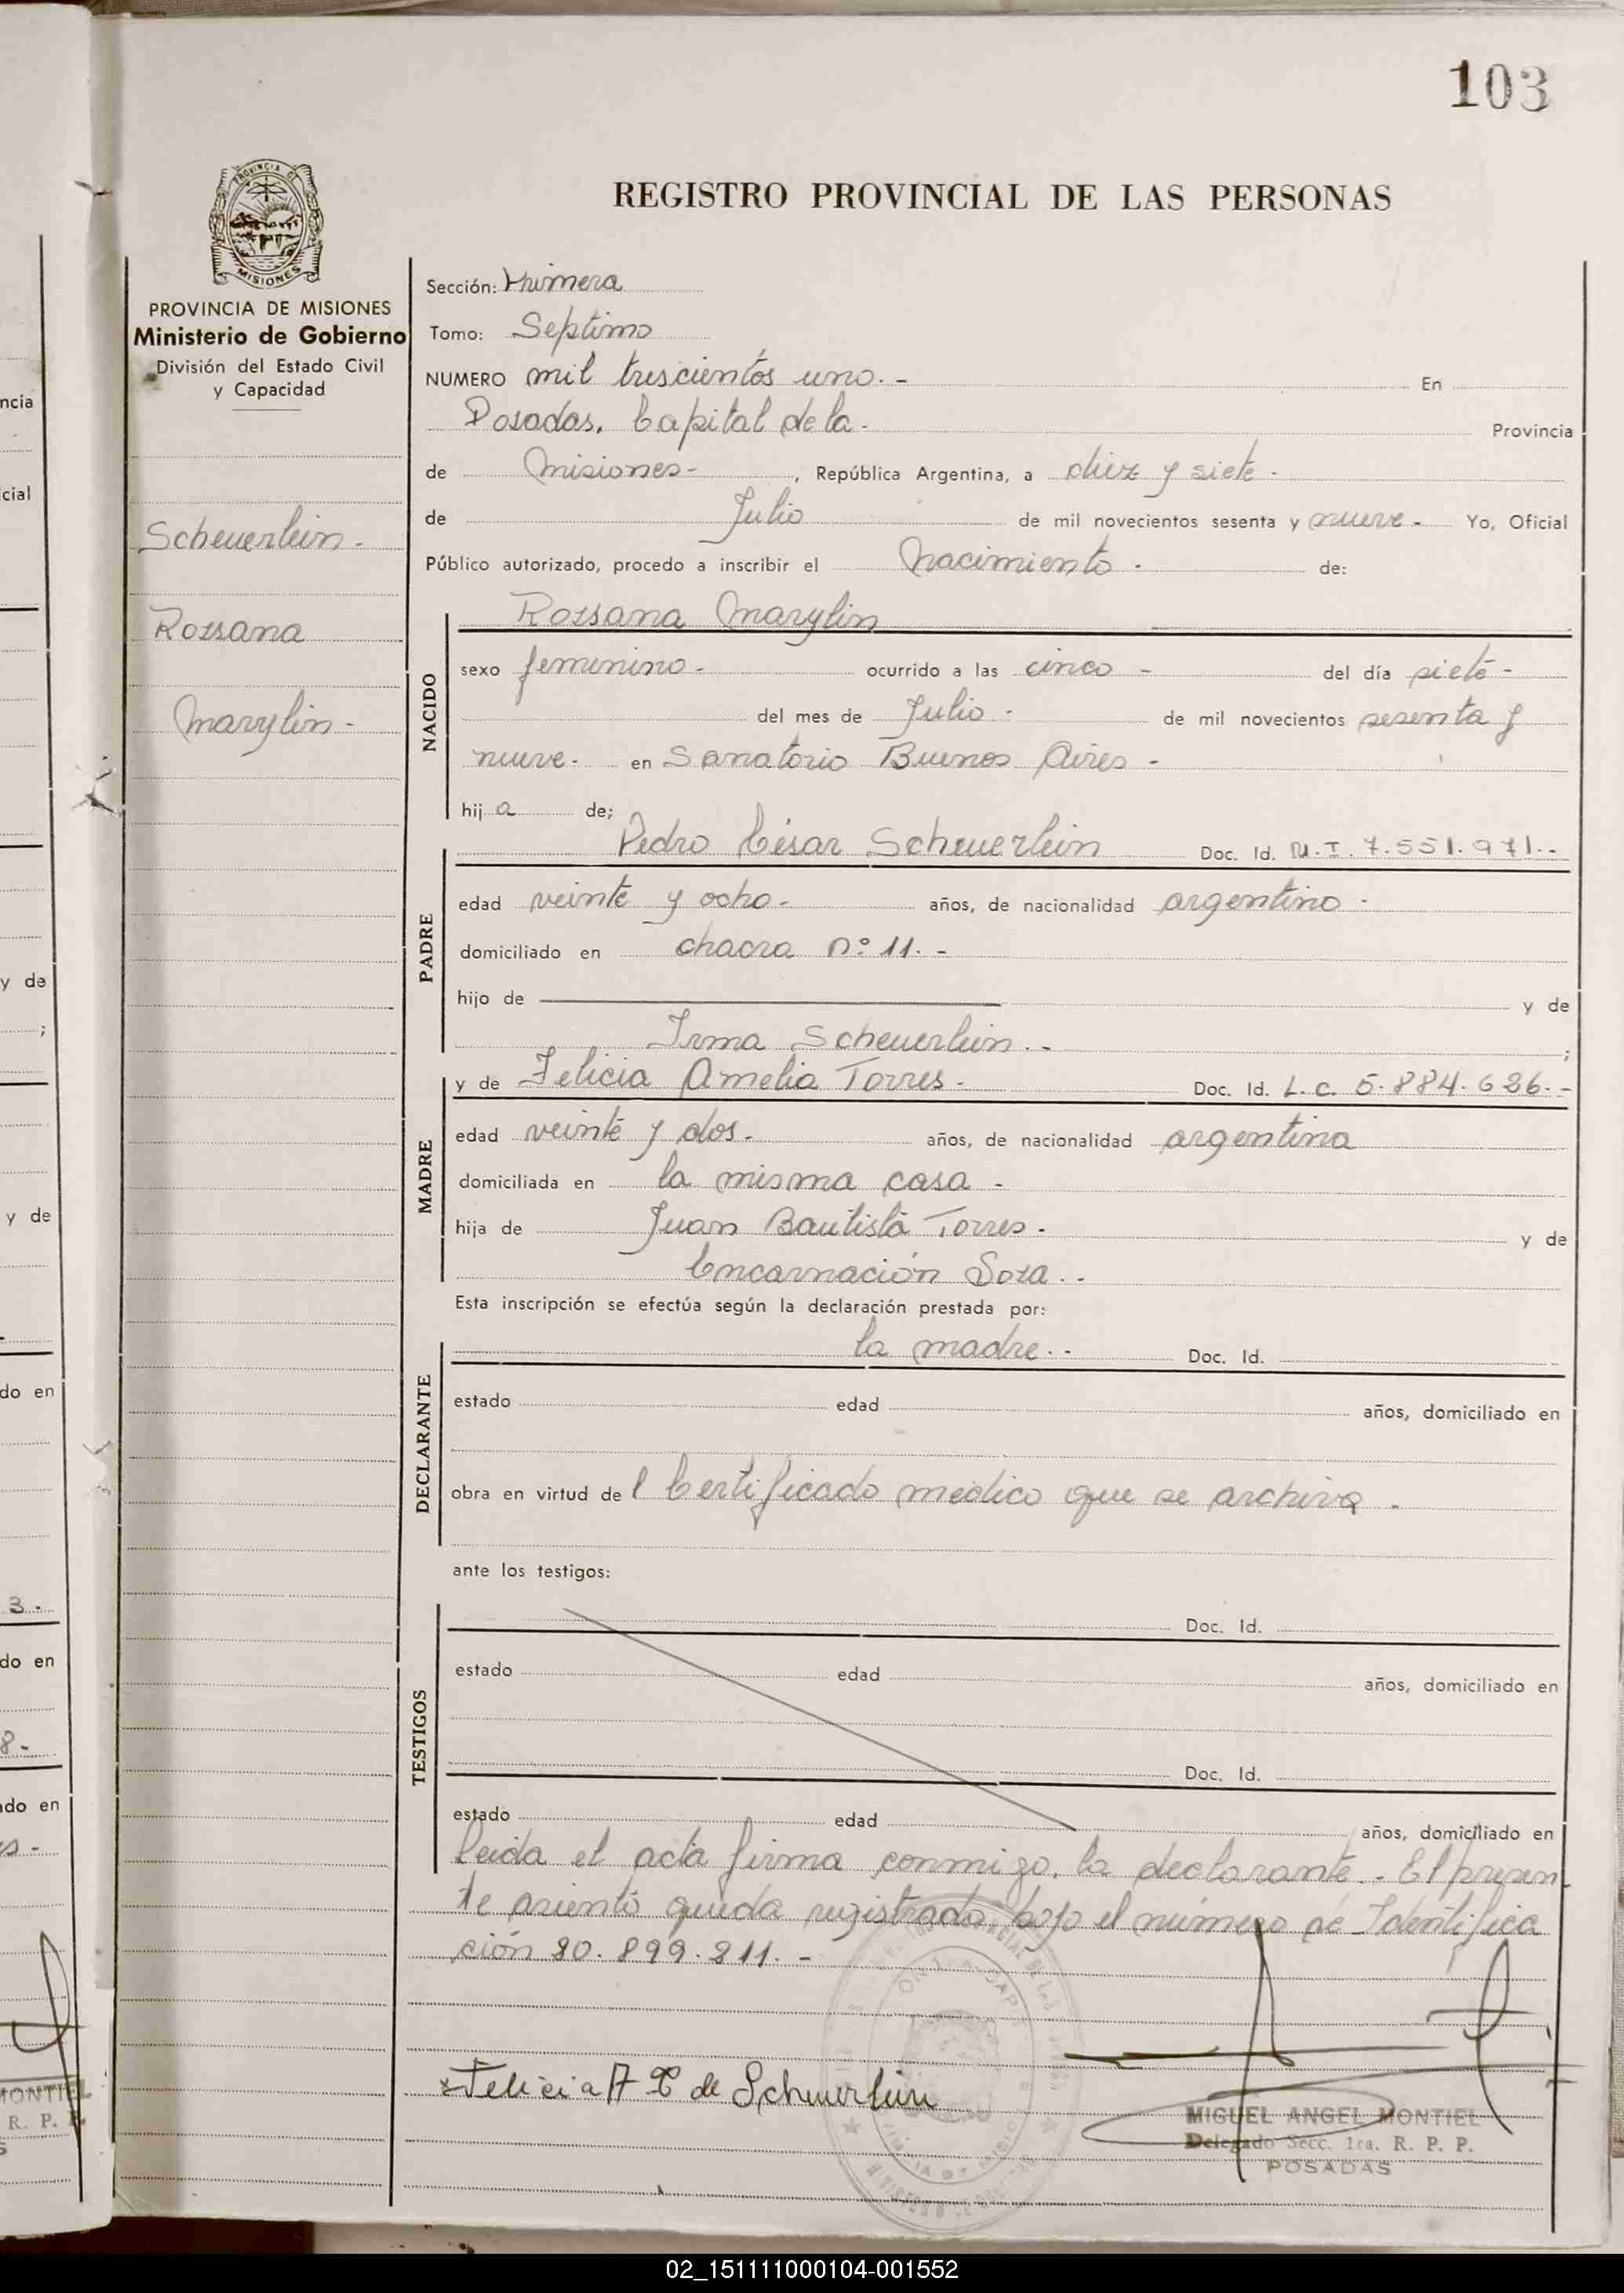 103
REGISTRO PROVINCIAL DE LAS PERSONAS
PROVINCIA DE MISIONES
Ministerio de Gobierno
División del Estado Civil
y Capacidad
Scheuerlein.-
Rossana
Marylin-
Sección: Primera
Tomo: Septimo
NUMERO mil trescientos uno.- En
Posadas, Capital de la- Provincia
de Misiones-, República Argentina, a diez y siete-
de Julio de mil novecientos sesenta y nueve- Yo, Oficial
Público autorizado, procedo a inscribir el Nacimiento- de:
NACIDO
Rossana Marylin
sexo femenino- ocurrido a las cinco- del día siete-
del mes de Julio- de mil novecientos sesenta y
nueve- en Sanatorio Buenos Aires-
hija de;
PADRE
Pedro César Scheuerlein Doc. Id. M.I. 7.551.971.-
edad veinte y ocho- años, de nacionalidad argentino-
domiciliado en chacra nº 11.-
hijo de y de
Irma Scheuerlein.- ;
MADRE
y de Felicia Amelia Torres- Doc. Id. L.C. 5.884.626.-
edad veinte y dos- años, de nacionalidad argentina
domiciliada en la misma casa-
hija de Juan Bautista Torres- y de
Encarnación Sosa.-
Esta inscripción se efectúa según la declaración prestada por:
DECLARANTE
la madre.- Doc. Id.
estado edad años, domiciliado en
obra en virtud del Certificado médico que se archiva.
ante los testigos:
TESTIGOS
Doc. Id.
estado edad años, domiciliado en
Doc. Id.
estado edad años, domiciliado en
Leida el acta firma conmigo, la declarante.- El presen
te asiento queda registrado, bajo el número de Identifica
ción 20.899.211.-
Felicia A T. de Scheuerlein
MIGUEL ANGEL MONTIEL
Delegado Secc. 1ra. R. P. P.
POSADAS
02_151111000104-001552